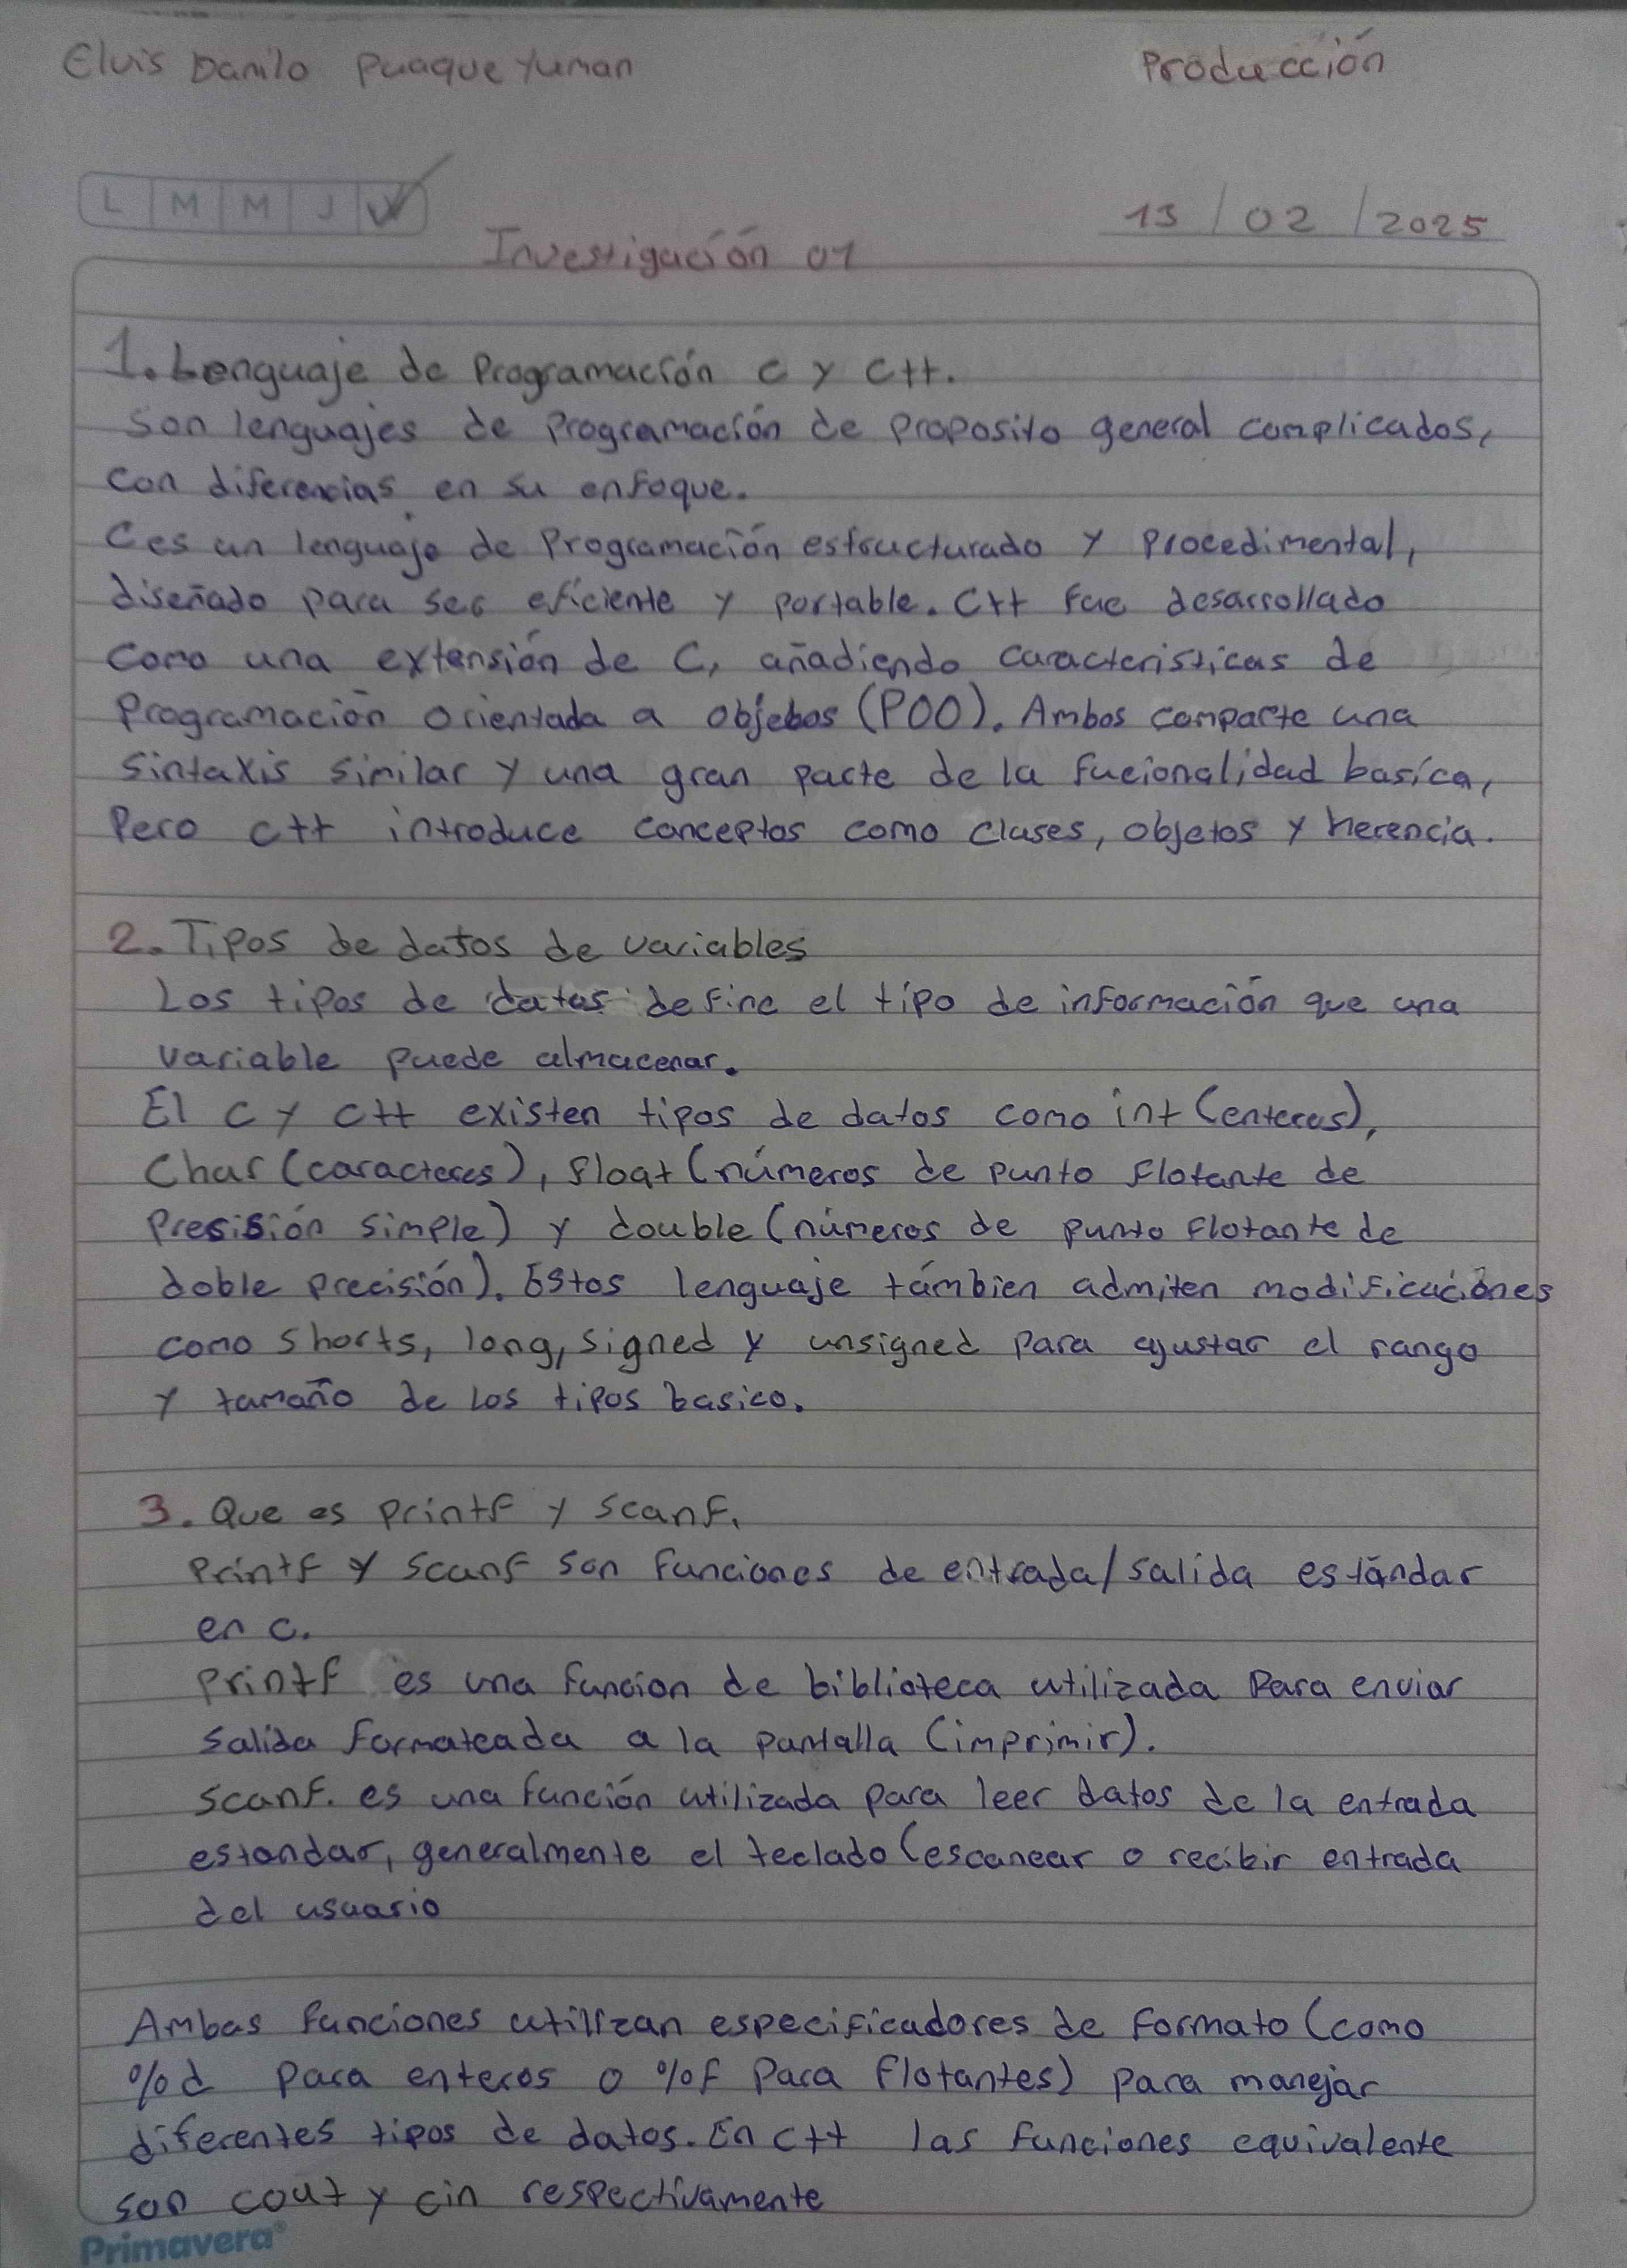 Elvis Danilo Puaque Yuman
Producción
L M M J V
13 / 02 / 2025
Investigación 01
1. Lenguaje de Programación C y C++.
Son lenguajes de programación de proposito general complicados,
con diferencias en su enfoque.
C es un lenguaje de Programación estructurado y procedimental,
diseñado para ser eficiente y portable. C++ fue desarrollado
como una extensión de C, añadiendo caracteristicas de
Programación orientada a objetos (POO). Ambos comparte una
sintaxis similar y una gran parte de la fucionalidad basica,
Pero C++ introduce conceptos como clases, objetos y herencia.
2. Tipos de datos de variables
Los tipos de datos define el tipo de información que una
variable puede almacenar.
El C y C++ existen tipos de datos como int (enteros),
Char (caracteres), float (números de punto flotante de
Presisión simple) y double (números de punto flotante de
doble precisión). Estos lenguaje támbien admiten modificaciónes
como shorts, long, signed y unsigned para ajustar el rango
y tamaño de los tipos basico.
3. Que es printf y scanf.
Printf y Scanf son funciones de entrada/salida estándar
en c.
printf es una funcion de biblioteca utilizada para enviar
salida formateada a la pantalla (imprimir).
scanf. es una función utilizada para leer datos de la entrada
estandar, generalmente el teclado (escanear o recibir entrada
del usuario
Ambas funciones utilizan especificadores de formato (como
%d para enteros o %f para flotantes) para manejar
diferentes tipos de datos. En C++ las funciones equivalente
son cout y cin respectivamente
Primavera®